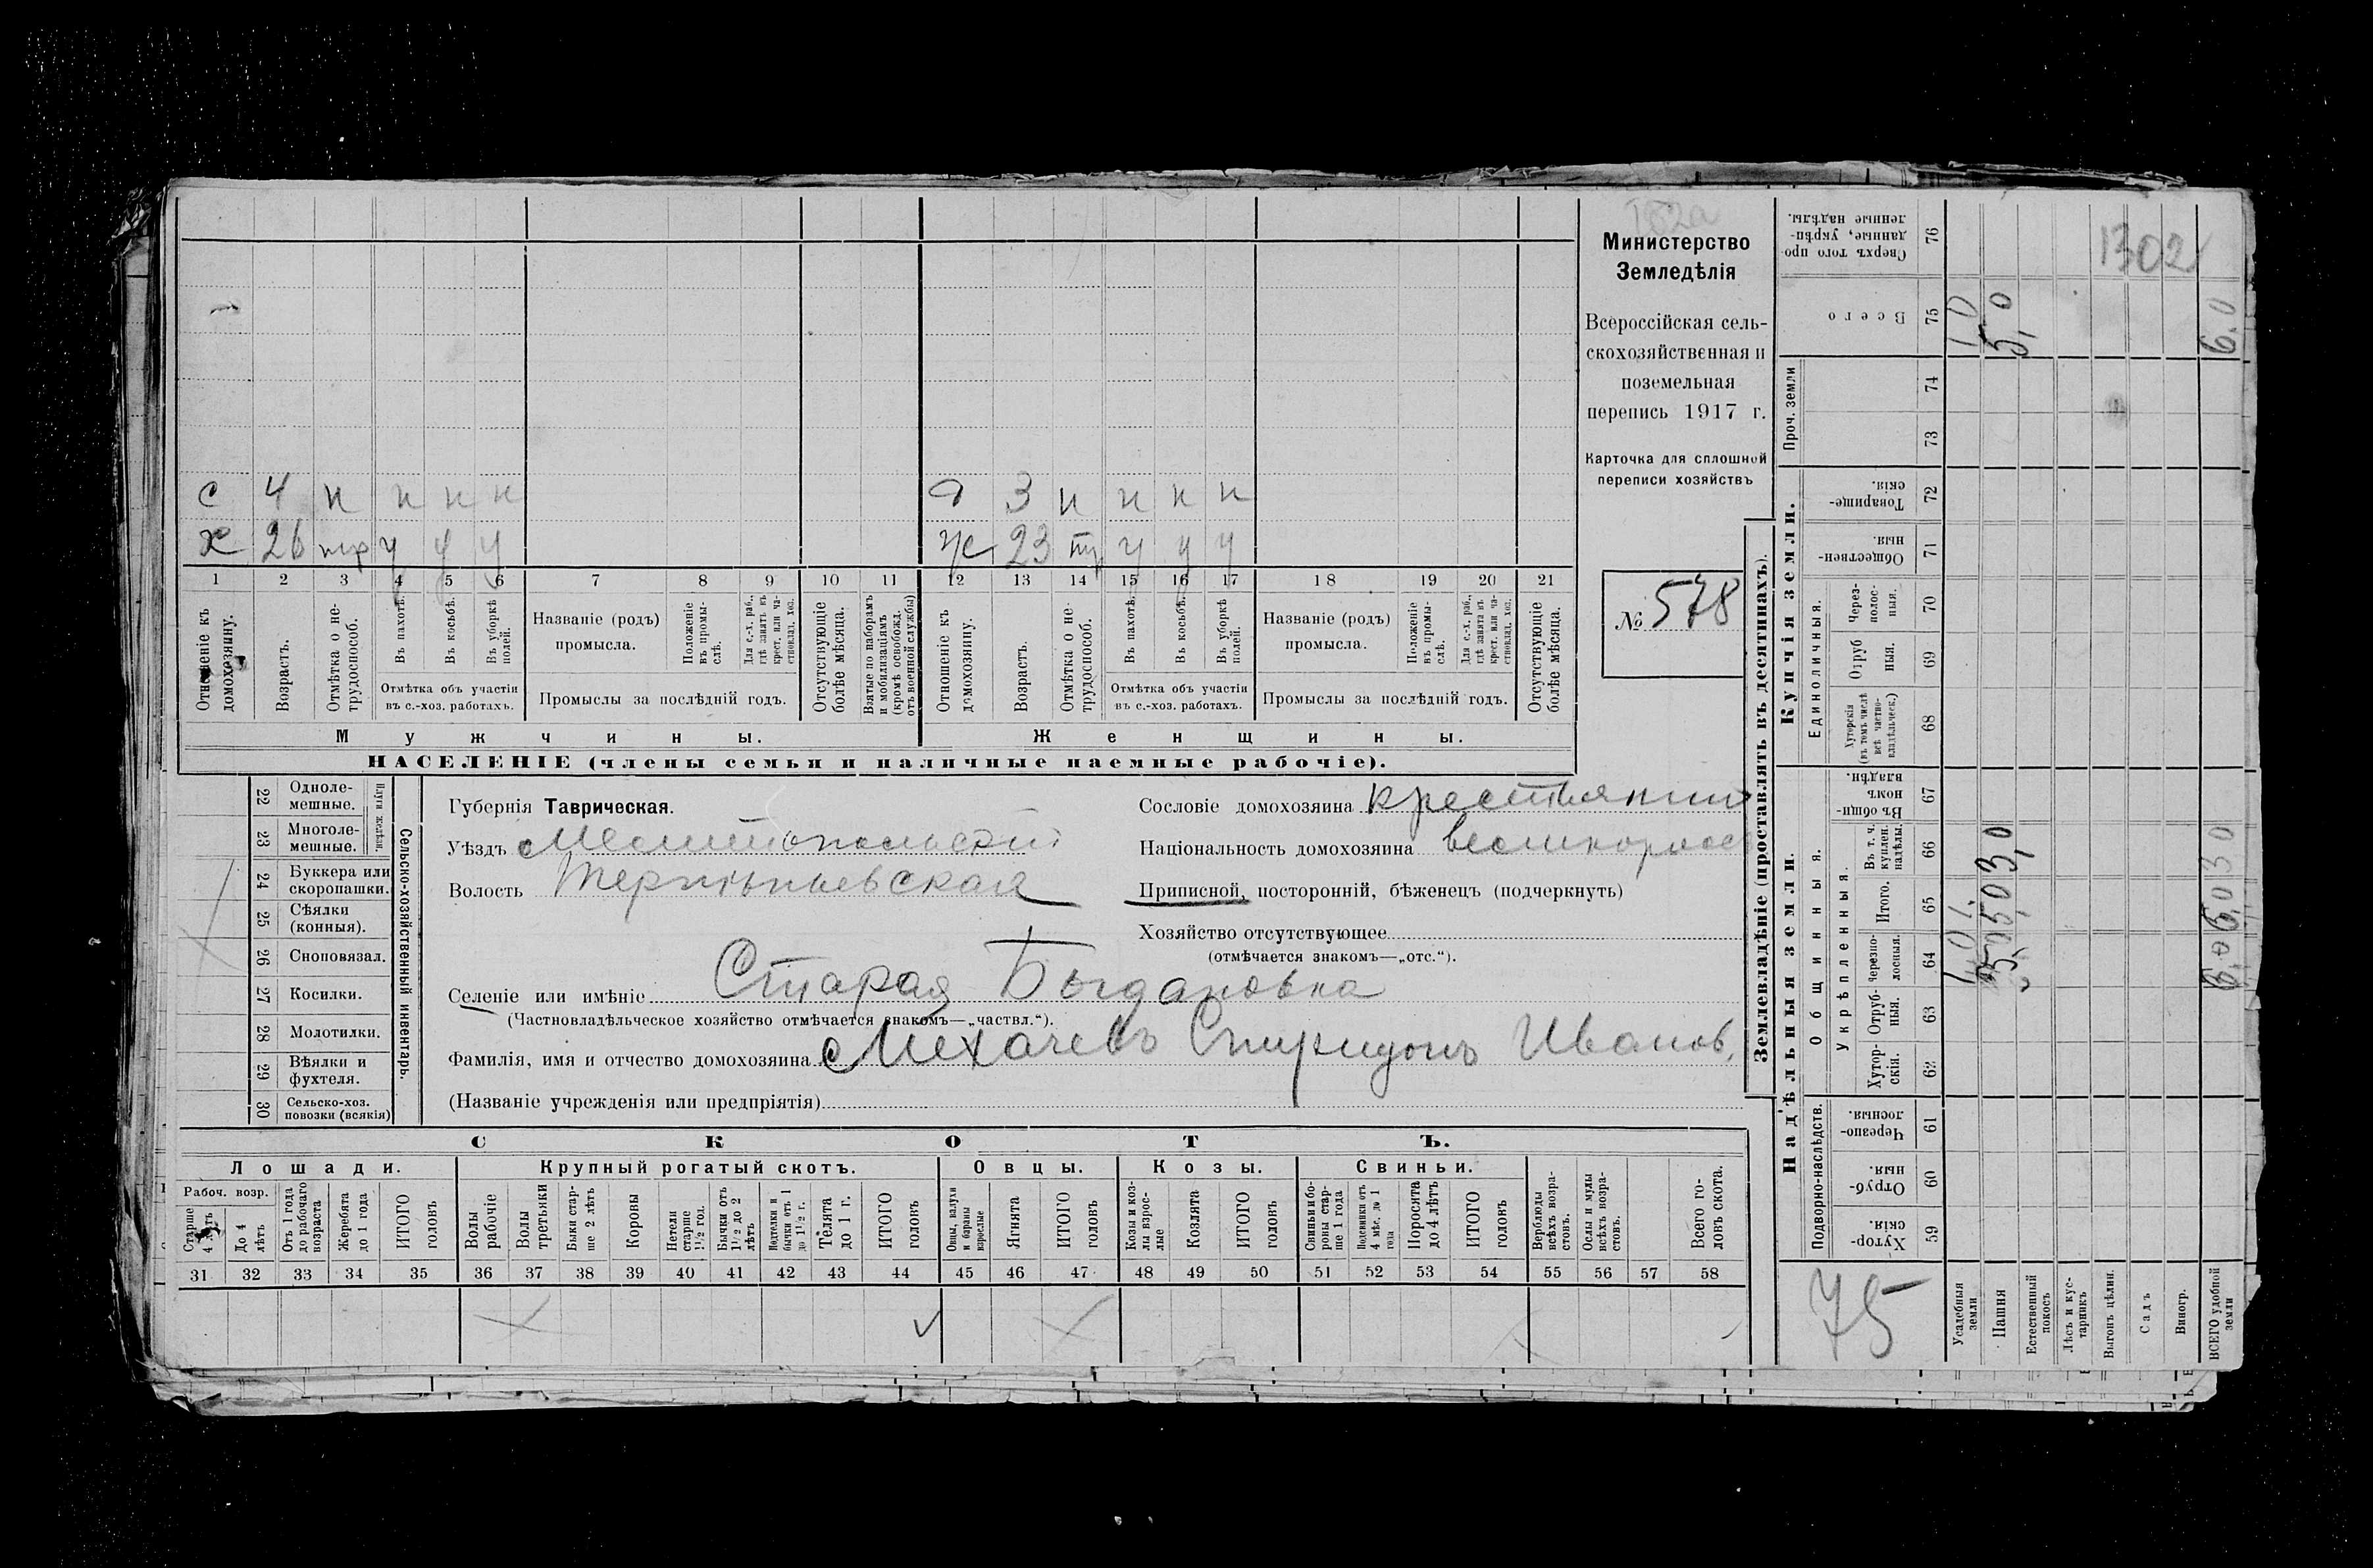 182а
Министерство
Земледѣлія
Всероссійская сель-
скохозяйственная и
поземельная
перепись 1917 г.
Карточка для сплошной
переписи хозяйствъ
№ 578
с 4 н н н н
д 3 н н н н
х 26 тр у у у
ж 23 тр у у у
1 2 3 4 5 6 7 8 9 10 11 12 13 14 15 16 17 18 19 20 21
Отношеніе къ домохозяину.
Возрастъ.
Отмѣтка о не-
трудоспособ.
Въ пахотѣ.
Въ косьбѣ.
Въ уборкѣ
полей.
Отмѣтка объ участіи
въ с.-хоз. работахъ.
Названіе (родъ)
промысла.
Положеніе
въ промы-
слѣ.
Для с.-х. раб.,
гдѣ занятъ въ
крест. или ча-
стновлад. хоз.
Промыслы за послѣдній годъ.
Отсутствующіе
болѣе мѣсяца.
Взятые по наборамъ
и мобилизаціямъ
(кромѣ освобожд.
отъ военной службы)
Отношеніе къ
домохозяину.
Возрастъ.
Отмѣтка о не-
трудоспособ.
Въ пахотѣ.
Въ косьбѣ.
Въ уборкѣ
полей.
Отмѣтка объ участіи
въ с.-хоз. работахъ.
Названіе (родъ)
промысла.
Положеніе
въ промы-
слѣ.
Для с.-х. раб.,
гдѣ занята въ
крест. или ча-
стновлад. хоз.
Промыслы за послѣдній годъ.
Отсутствующіе
болѣе мѣсяца.
Мужчины.
Женщины.
НАСЕЛЕНІЕ (члены семьи и наличные наемные рабочіе).
22 Одноле-
мешные.
23 Многоле-
мешные.
Плуги желѣзн.
24 Буккера или
скоропашки.
25 Сѣялки
(конныя).
26 Сноповязал.
27 Косилки.
28 Молотилки.
29 Вѣялки и
фухтеля.
30 Сельско-хоз.
повозки (всякія)
Сельско-хозяйственный инвентарь.
Губернія Таврическая.
Уѣздъ Мелитопольскій
Волость Терпѣньевская
Сословіе домохозяина крестьянин
Національность домохозяина великорос
Приписной, посторонній, бѣженецъ (подчеркнуть)
Хозяйство отсутствующее
(отмѣчается знакомъ—„отс.“).
Селеніе или имѣніе Старая Богдановка
(Частновладѣльческое хозяйство отмѣчается знакомъ—„частвл.“).
Фамилія, имя и отчество домохозяина Мехачевъ Спиридонъ Иванов.
(Названіе учрежденія или предпріятія)
СКОТЪ.
Лошади.
Крупный рогатый скотъ.
Овцы.
Козы.
Свиньи.
Рабоч. возр.
Старше
4 лѣтъ
До 4
лѣтъ
Отъ 1 года
до рабочаго
возраста
Жеребята
до 1 года
ИТОГО
головъ
Волы
рабочіе
Волы
третьяки
Быки стар-
ше 2 лѣтъ
Коровы
Нетели
старше
1½ год.
Бычки отъ
1½ до 2
лѣтъ
Подтелки и
бычки отъ 1
до 1½ г.
Телята
до 1 г.
ИТОГО
головъ
Овцы, валухи
и бараны
взрослые
Ягнята
ИТОГО
головъ
Козы и коз-
лы взрос-
лые
Козлята
ИТОГО
головъ
Свиньи и бо-
ровы стар-
ше 1 года
Подсвинки отъ
4 мѣс. до 1
года
Поросята
до 4 лѣтъ
ИТОГО
головъ
Верблюды
всѣхъ возра-
стовъ.
Ослы и мулы
всѣхъ возра-
стовъ.
Всего го-
ловъ скота.
31 32 33 34 35 36 37 38 39 40 41 42 43 44 45 46 47 48 49 50 51 52 53 54 55 56 57 58
Землевладѣніе (проставлять въ десятинахъ).
Купчія земли.
Надѣльныя земли.
Сверхъ того про-
данные, укрѣп-
ленные надѣлы.
76
1302
Всего
75
1 0
5,0
6.0
Проч. земли
74
73
Товарище-
скія.
72
Обществен-
ныя.
71
Единоличныя.
Через-
полос-
ныя.
70
Отруб
ныя.
69
Хуторскія
(въ томъ числѣ
всѣ частно-
владѣльческ.)
68
Общинныя.
Въ общи-
номъ
владѣн.
67
Укрѣпленныя.
Въ т. ч.
куплен.
надѣлы.
66
3,0
Итого.
65
Черезпо-
лосныя.
64
Отруб-
ныя.
63
Хутор-
скія.
62
Подворно-наслѣдств.
Черезпо-
лосныя.
61
Отруб-
ныя.
60
Хутор-
скія.
59
75
Усадебныя
земли
Пашня
Естественный
покосъ
Лѣсъ и кус-
тарникъ
Выгонъ цѣлин.
Садъ
Виногр.
ВСЕГО удобной
земли